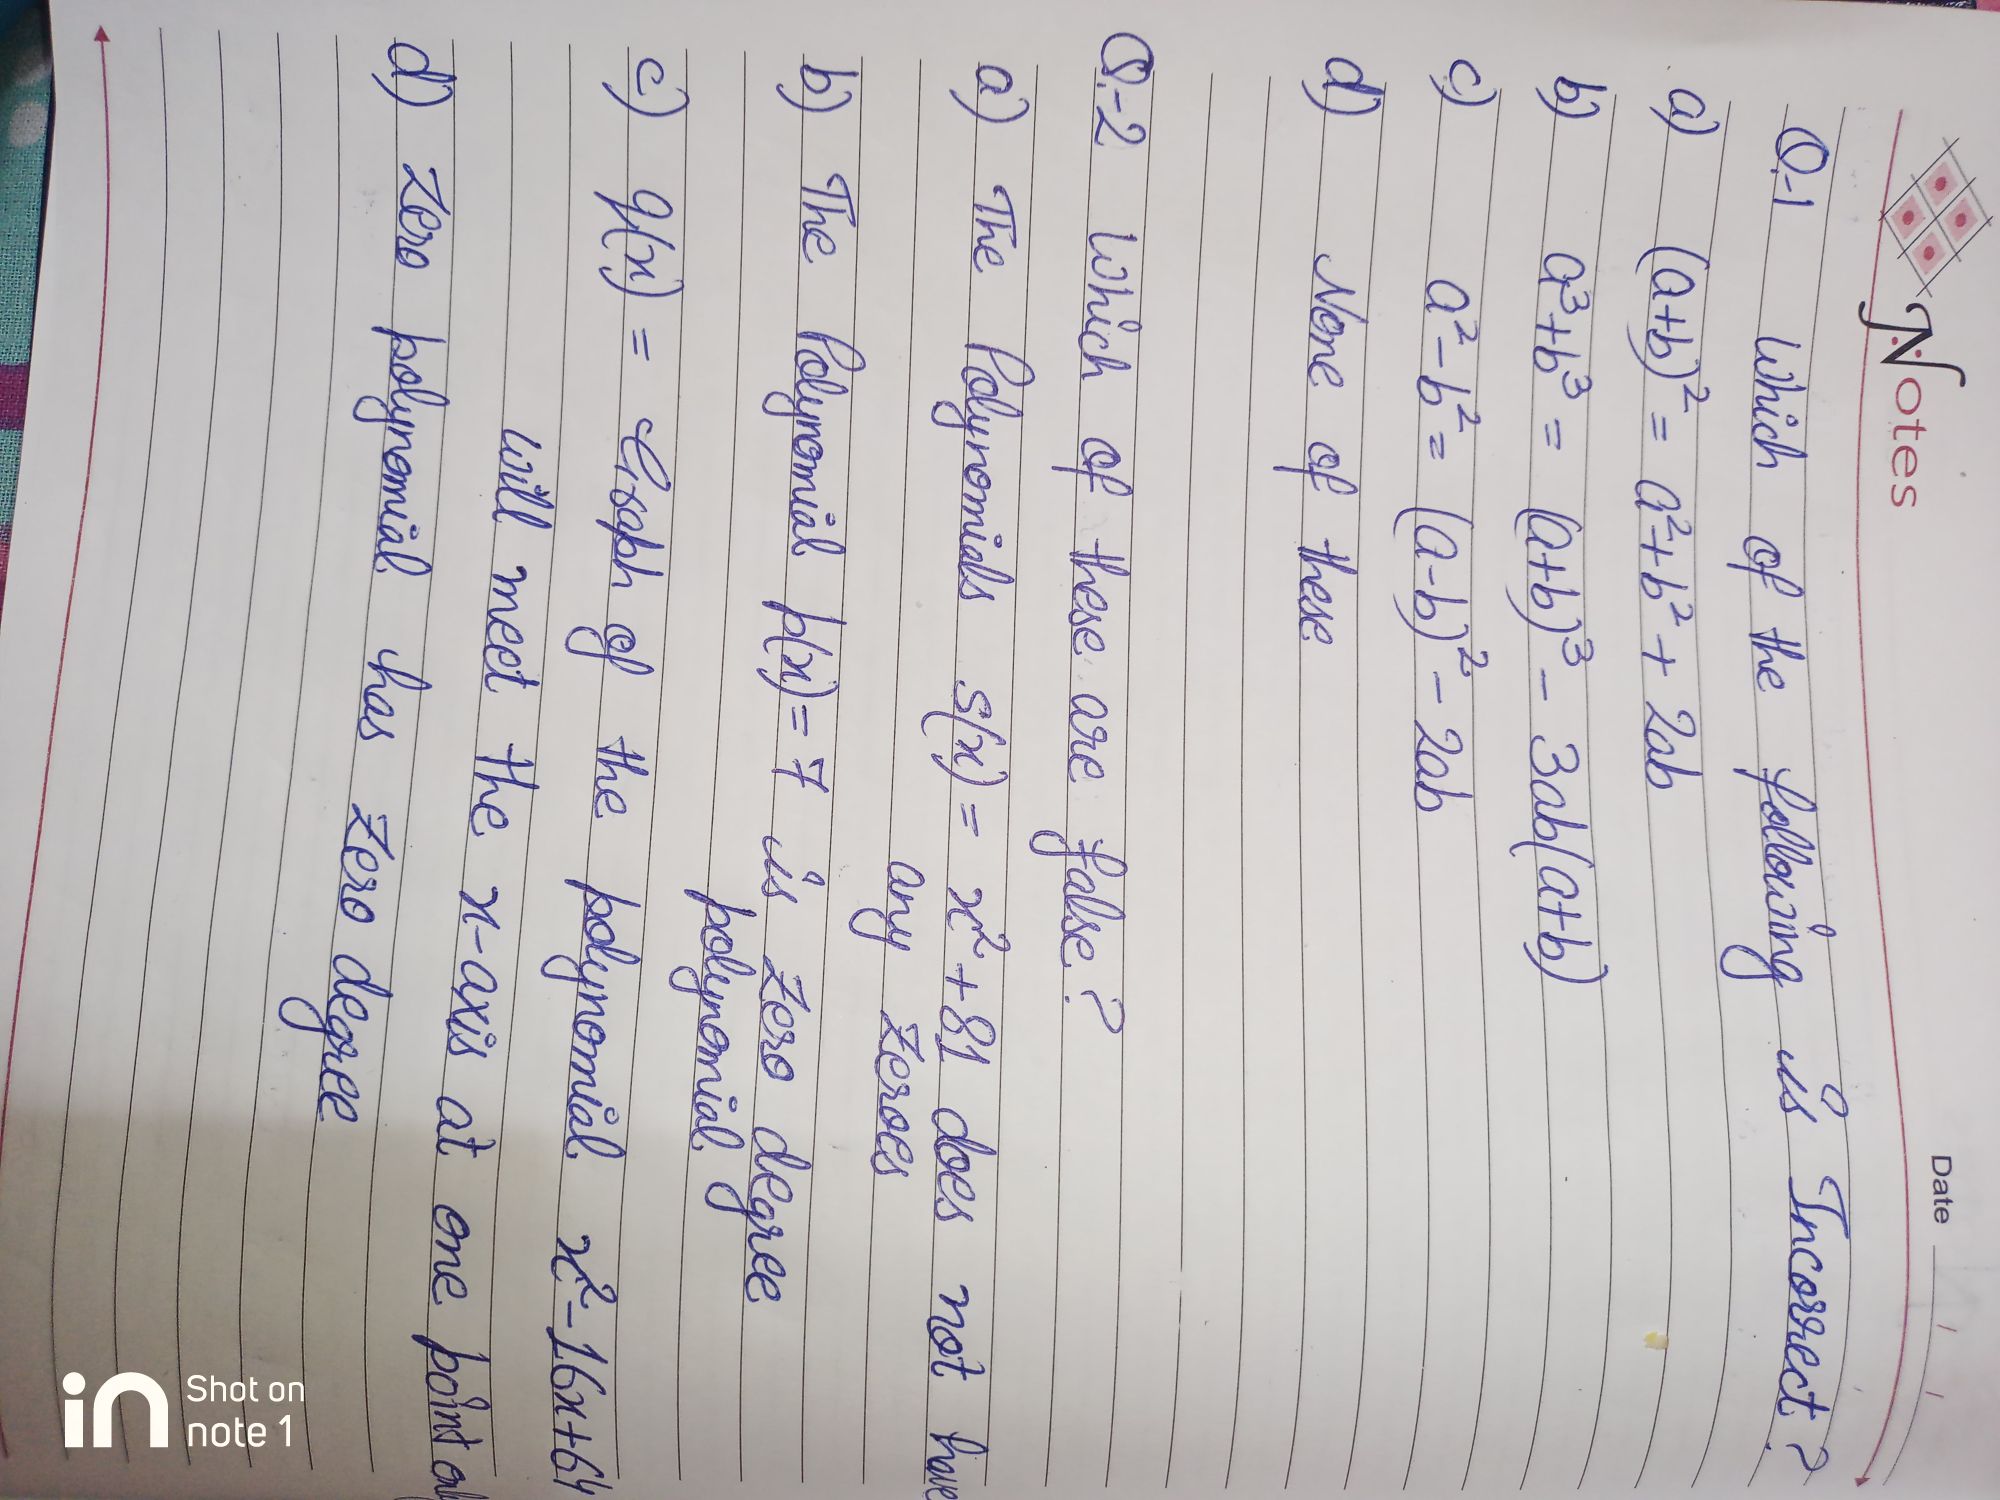 Notes
Date / /
Q.-1 Which of the following is Incorrect?
a) (a+b)² = a²+b² + 2ab
b) a³+b³ = (a+b)³ - 3ab(a+b)
c) a²-b² = (a-b)² - 2ab
d) None of these
Q.-2 Which of these are false?
a) The Polynomials s(x) = x²+81 does not have
any zeroes
b) The Polynomial p(x) = 7 is zero degree
polynomial
c) q(x) = Graph of the polynomial x²-16x+64
will meet the x-axis at one point
d) Zero polynomial has zero degree
Shot on
note 1